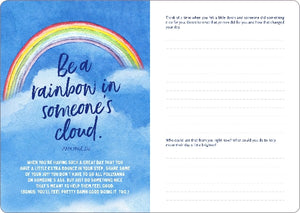 Be a
rainbow in
someone's
cloud.
WHEN YOU'RE HAVING SUCH A GREAT DAY THAT YOU
HAVE A LITTLE EXTRA BOUNCE IN YOUR STEP, SHARE
SOME OF YOUR JOY! YOU DON'T HAVE TO GO ALL POLLYANNA
ON SOMEONE'S ASS, BUT JUST DO SOMETHING NICE
THAT'S MEANT TO HELP THEM FEEL GOOD.
(BONUS: YOU'LL FEEL PRETTY DAMN GOOD DOING IT, TOO.)
Think of a time when you felt a little down and someone did something
nice for you. Write down what that person did for you and how that changed
your day.
Who could use that from you right now? What could you do to
make their day a little brighter?